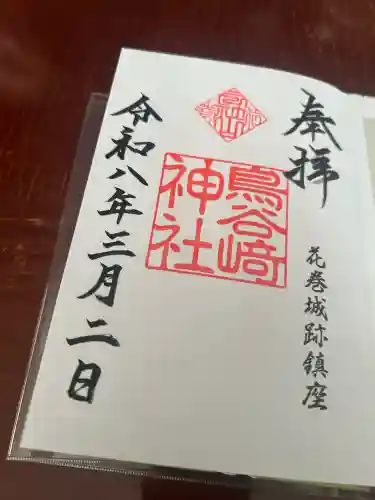 奉拝
花巻城跡鎮座
鳥谷崎
神社
令和八年三月二日